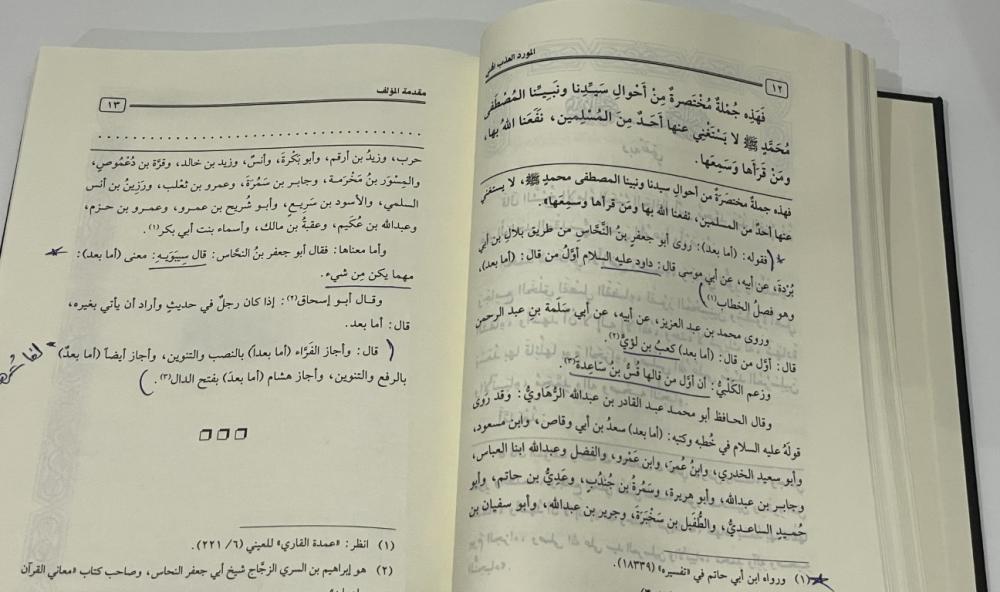 ١٢
المورد العذب الهني
فَهَذِه جُمْلةٌ مُخْتَصرةٌ مِنْ أَحْوالِ سَيِّدِنا ونَبِيِّنا المُصْطَفَى
مُحَمَّدٍ ﷺ لا يَسْتَغْنِي عنها أَحَدٌ مِنَ المُسْلِمين، نَفَعَنا اللهُ بها،
ومَنْ قَرَأَها وَسَمِعَها.
فهذه جملةٌ مختصَرَةٌ من أحوالِ سيدنا ونبينا المصطفى محمدٍ ﷺ، لا يستغني
عنها أحدٌ من المسلمين، نفعنا الله بها ومَن قرأها وسَمِعَها».
فقوله: (أما بعد): روى أبو جعفرٍ بنُ النَّحَّاس من طريق بلالِ بن أبي
بُرْدة، عن أبيه، عن أبي موسى قال: داود عليه السلام أوَّلُ من قال: (أما بعد)،
وهو فصلُ الخطاب(١).
وروى محمد بن عبد العزيز، عن أبيه، عن أبي سَلَمة بنِ عبد الرحمن
قال: أوَّل من قال: (أما بعد) كعبُ بن لؤيٍّ(٢).
وزعم الكَلْبيُّ: أن أوَّل من قالها قُسُّ بنُ ساعِدةَ(٣).
وقال الحـافظ أبو محمـد عبـد القادر بن عبدالله الرُّهَاوِيُّ: وقـد رَوَى
قولَهُ عليه السلام في خُطبه وكتبه: (أما بعد) سعدُ بن أبي وقاص، وابن مسعود،
وأبو سعيد الخدري، وابنُ عُمرَ، وابن عَمْرو، والفضل وعبدالله ابنا العباس،
وجابـر بن عبدالله، وأبو هريرة، وسَمُرةُ بن جُنْدُبٍ، وعَدِيُّ بن حاتم، وأبو
حُميـدٍ السـاعـديُّ، والطُّفَيل بن سَخْبَرَةَ، وجرير بن عبدالله، وأبو سفيان بن
(١) ورواه ابن أبي حاتم في «تفسيره» (١٨٣٣٩).
مقدمة المؤلف
١٣
حرب، وزيدُ بن أرقم، وأبو بَكْرةَ، وأنسٌ، وزيد بن خالد، وقرَّة بن دُعْمُوصٍ،
والمِسْوَر بنُ مَخْرَمـة، وجابـر بن سَمُرَةَ، وعمرو بن ثعْلب، ورَزِينُ بن أنس
السلمي، والأسود بن سَرِيـعٍ، وأبـو شُريح بن عمـرو، وعمـرو بن حـزم،
وعبدالله بن عُكَيم، وعقبةُ بن مالك، وأسماء بنت أبي بكر(١).
وأما معناها: فقال أبو جعفر بنُ النحَّاس: قال سِيبَوَيـهِ: معنى (أما بعد):
مهما يكن مِن شيء.
وقـال أبـو إسحاق(٢): إذا كان رجلٌ في حديثٍ وأراد أن يأتي بغيره،
قال: أما بعد.
قال: وأجاز الفَرَّاء (أما بعداً) بالنصب والتنوين، وأجاز أيضاً (أما بعدٌ)
بالرفع والتنوين، وأجاز هشام (أما بعدَ) بفتح الدال(٣).
(١) انظر: «عمدة القاري» للعيني (٦/ ٢٢١).
(٢) هو إبراهيم بن السري الزجَّاج شيخ أبي جعفر النحاس، وصاحب كتاب «معاني القرآن